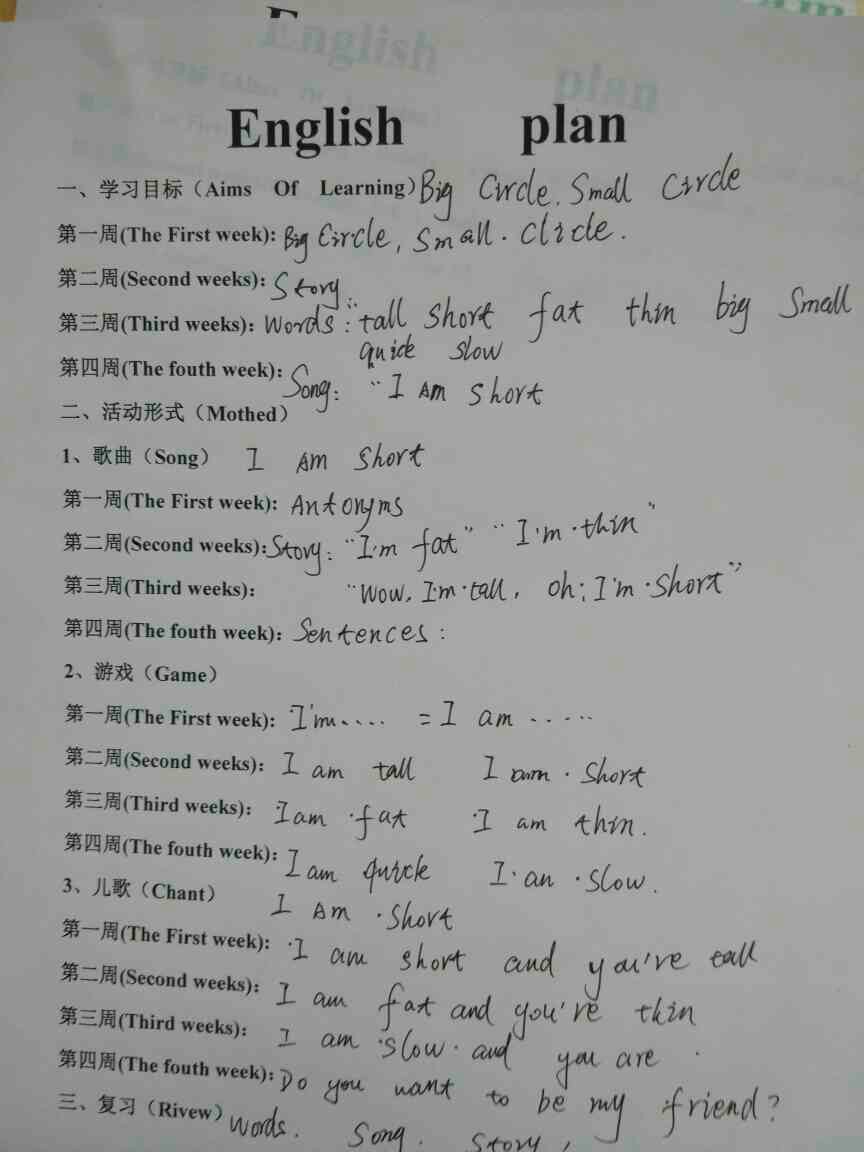 English plan
一、学习目标（Aims Of Learning）Big Circle, Small Circle
第一周(The First week): Big Circle, Small. Clrcle.
第二周(Second weeks): Story:
第三周(Third weeks): Words: tall short fat thin big Small
quick slow
第四周(The fouth week): Song: "I Am short
二、活动形式（Mothed）
1、歌曲（Song） I Am Short
第一周(The First week): Antonyms
第二周(Second weeks): Story: "I'm fat" "I'm·thin"
第三周(Third weeks): "Wow, I'm·tall, Oh; I'm·Short"
第四周(The fouth week): Sentences:
2、游戏（Game）
第一周(The First week): I'm.... = I am .....
第二周(Second weeks): I am tall I am · Short
第三周(Third weeks): ·I am ·fat ·I am thin.
第四周(The fouth week): I am quick I· an ·Slow.
3、儿歌（Chant） I Am ·Short
第一周(The First week): ·I am short and you're tall
第二周(Second weeks): I am fat and you're thin
第三周(Third weeks): I am ·Slow· and you are ·
第四周(The fouth week): Do you want to be my friend?
三、复习（Rivew）Words. Song. Story,